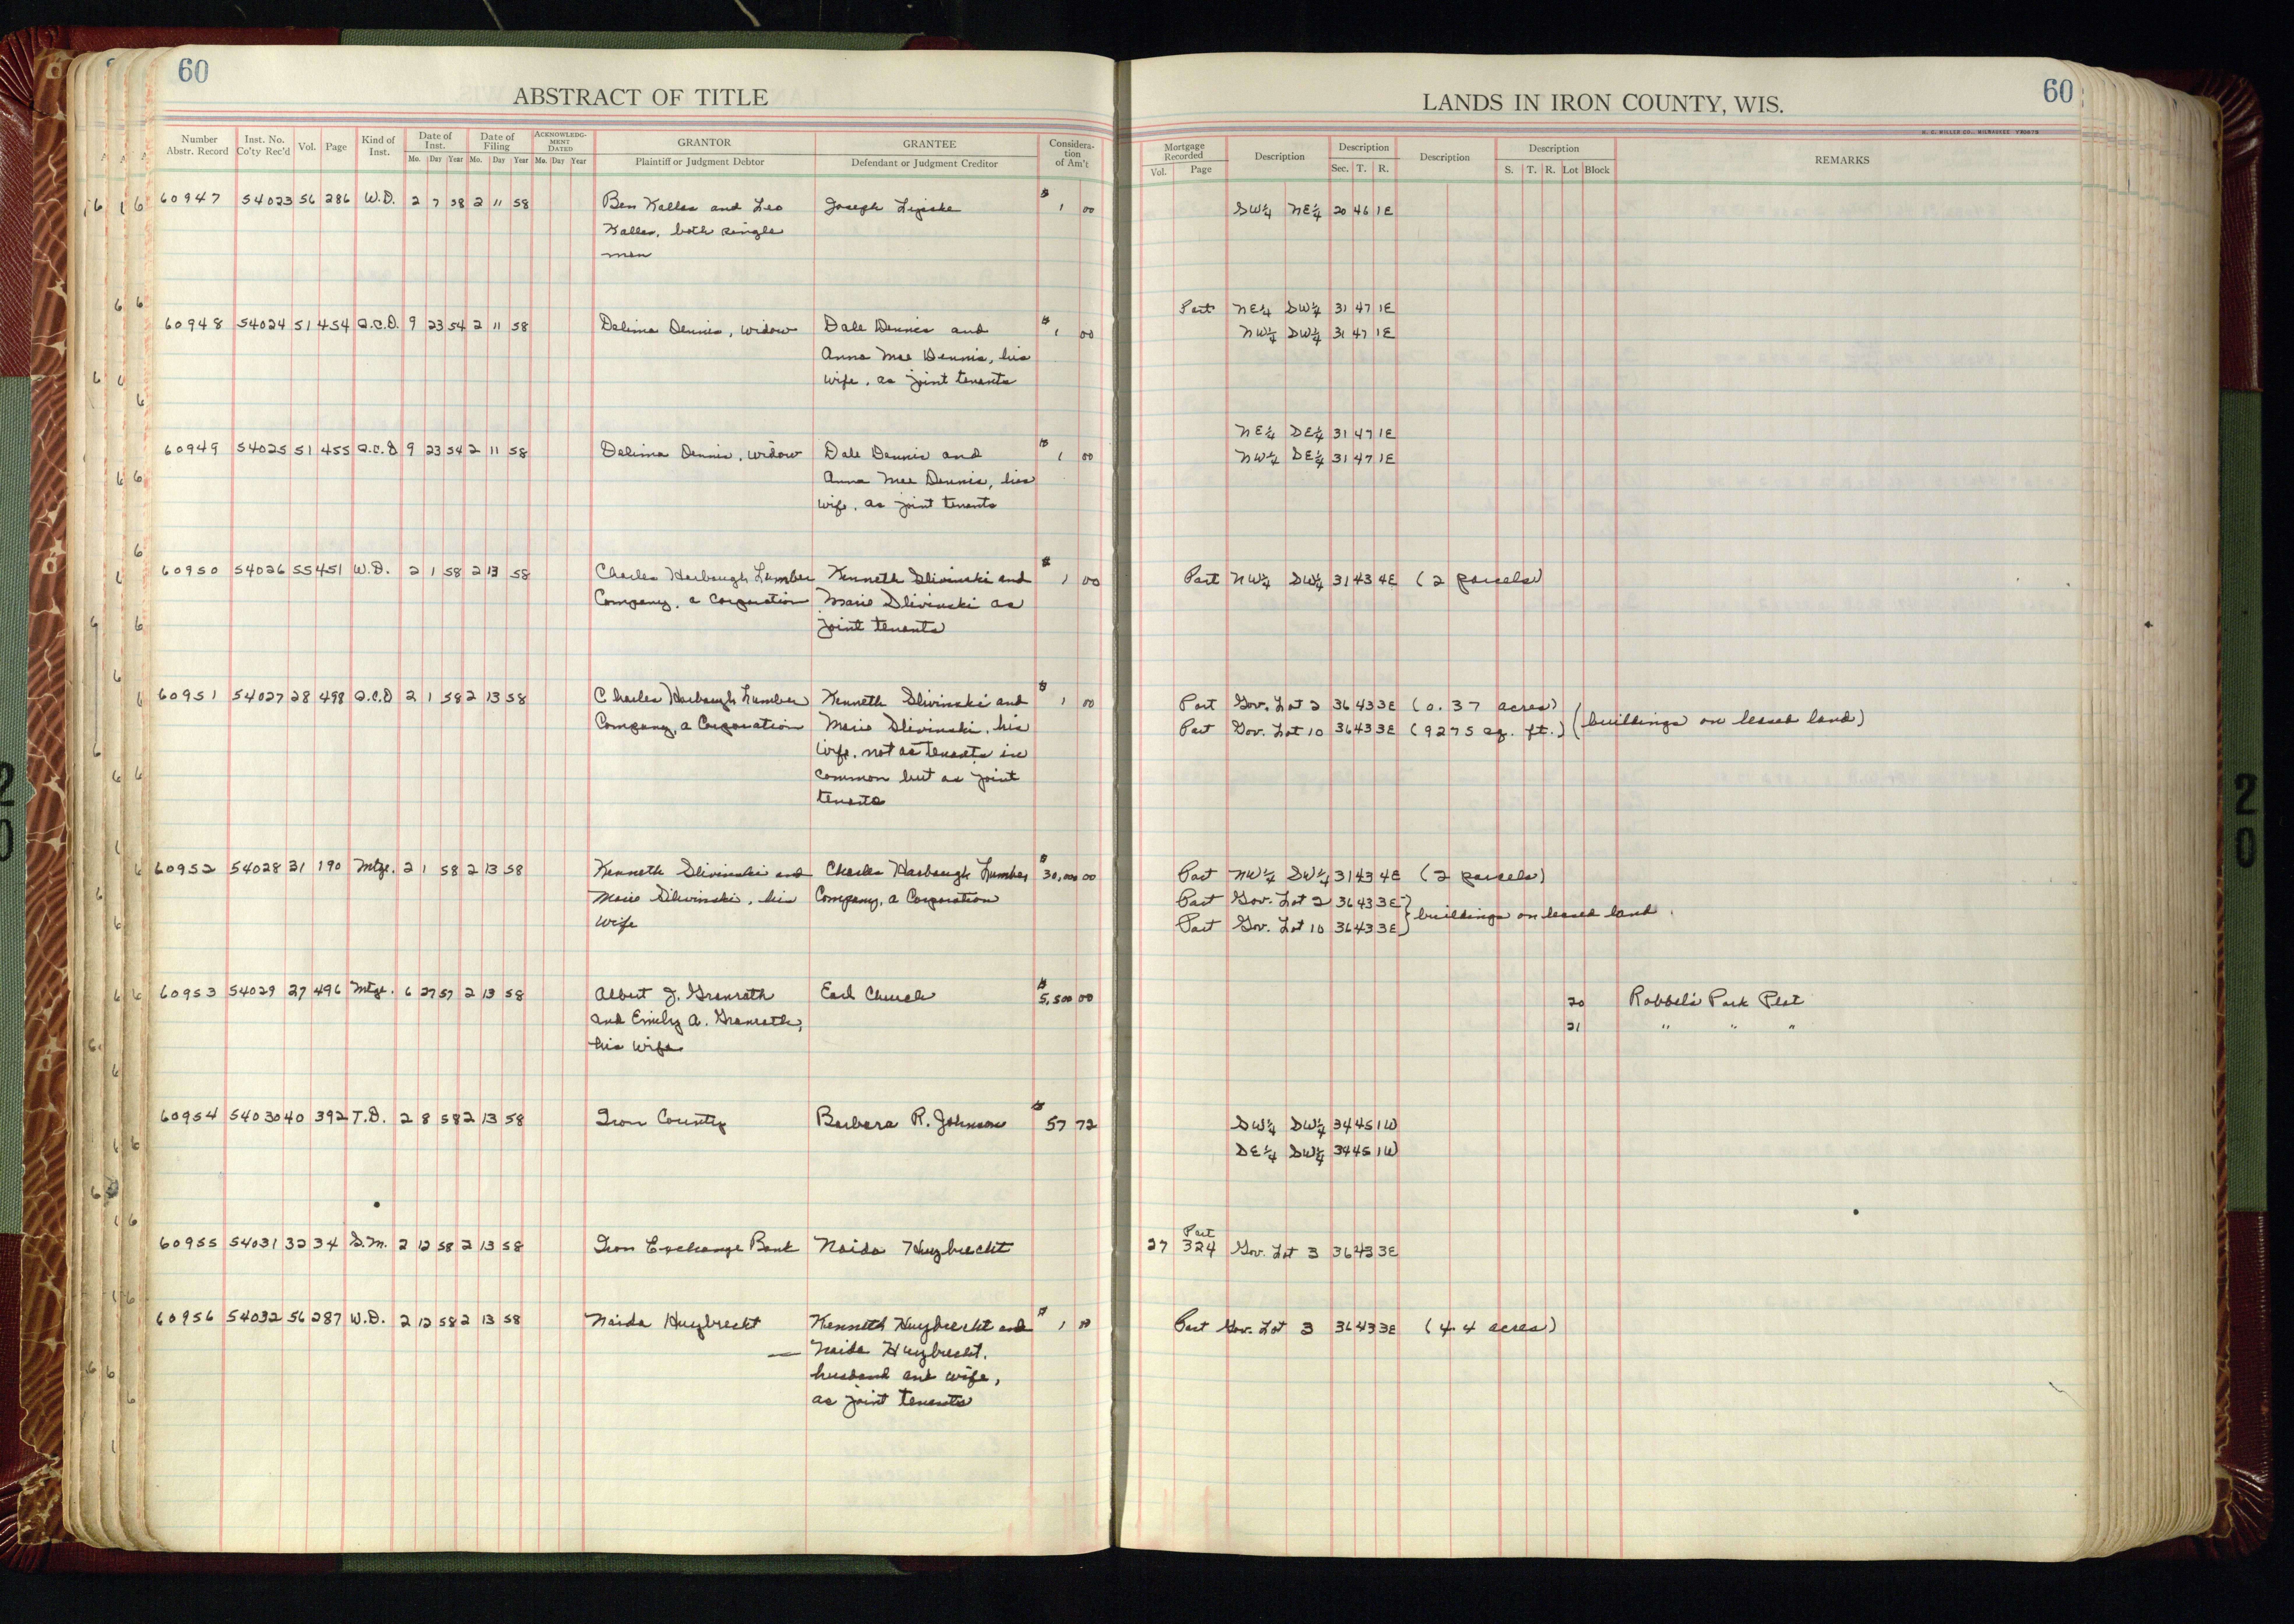 60
ABSTRACT OF TITLE
Number Abstr. Record Inst. No. Co'ty Rec'd Vol. Page Kind of Inst. Date of Inst. Mo. Day Year Date of Filing Mo. Day Year ACKNOWLEDGMENT DATED Mo. Day Year GRANTOR Plaintiff or Judgment Debtor GRANTEE Defendant or Judgment Creditor Consideration of Am't
60947 54023 56 286 W.D. 2 7 58 2 11 58 Ben Kallas and Leo Joseph $ 1 00
Kallas, both single
men
60948 54024 51 454 Q.C.D. 9 23 54 2 11 58 Delima Dennis, widow Dale Dennis and $ 1 00
Anna Mae Dennis, his
wife, as joint tenants
60949 54025 51 455 Q.C.D 9 23 54 2 11 58 Delima Dennis, widow Dale Dennis and $ 1 00
Anna Mae Dennis, his
wife, as joint tenants
60950 54026 55 451 W.D. 2 1 58 2 13 58 Charles Harbaugh Lumber Kenneth Slivinski and $ 1 00
Company, a Corporation Marie Slivinski as
joint tenants
60951 54027 28 498 Q.C.D 2 1 58 2 13 58 Charles Harbaugh Lumber Kenneth Slivinski and $ 1 00
Company, a Corporation Marie Slivinski, his
wife, not as tenants in
common but as joint
tenants
60952 54028 31 190 Mtge. 2 1 58 2 13 58 Kenneth Slivinski and Charles Harbaugh Lumber $ 30,000 00
Marie Slivinski, his Company, a Corporation
wife
60953 54029 27 496 Mtge. 6 27 57 2 13 58 Albert J. Granroth Earl Church $ 5,500 00
and Emily A. Granroth,
his wife
60954 54030 40 392 T.D. 2 8 58 2 13 58 Iron County Barbara R. Johnson $ 57 72
60955 54031 32 34 S.M. 2 12 58 2 13 58 Iron Exchange Bank Naida Huybrecht
60956 54032 56 287 W.D. 2 12 58 2 13 58 Naida Huybrecht Kenneth Huybrecht and $ 1 00
— Naida Huybrecht,
husband and wife,
as joint tenants
60
LANDS IN IRON COUNTY, WIS.
H. C. MILLER CO., MILWAUKEE
Mortgage Recorded Vol. Page Description Description Sec. T. R. Description Description S. T. R. Lot Block REMARKS
SW¼ NE¼ 20 46 1E
Part NE¼ SW¼ 31 47 1E
NW¼ SW¼ 31 47 1E
NE¼ SE¼ 31 47 1E
NW¼ SE¼ 31 47 1E
Part NW¼ SW¼ 31 43 4E (2 parcels)
Part Gov. Lot 2 36 43 3E (0.37 acres)
Part Gov. Lot 10 36 43 3E (9275 sq. ft.) (buildings on leased land)
Part NW¼ SW¼ 31 43 4E (2 parcels)
Part Gov. Lot 2 36 43 3E
Part Gov. Lot 10 36 43 3E } buildings on leased land
20 Robbel's Park Plat
21 " " "
SW¼ SW¼ 34 45 1W
SE¼ SW¼ 34 45 1W
Part
27 324 Gov. Lot 3 36 43 3E
Part Gov. Lot 3 36 43 3E (4.4 acres)
20